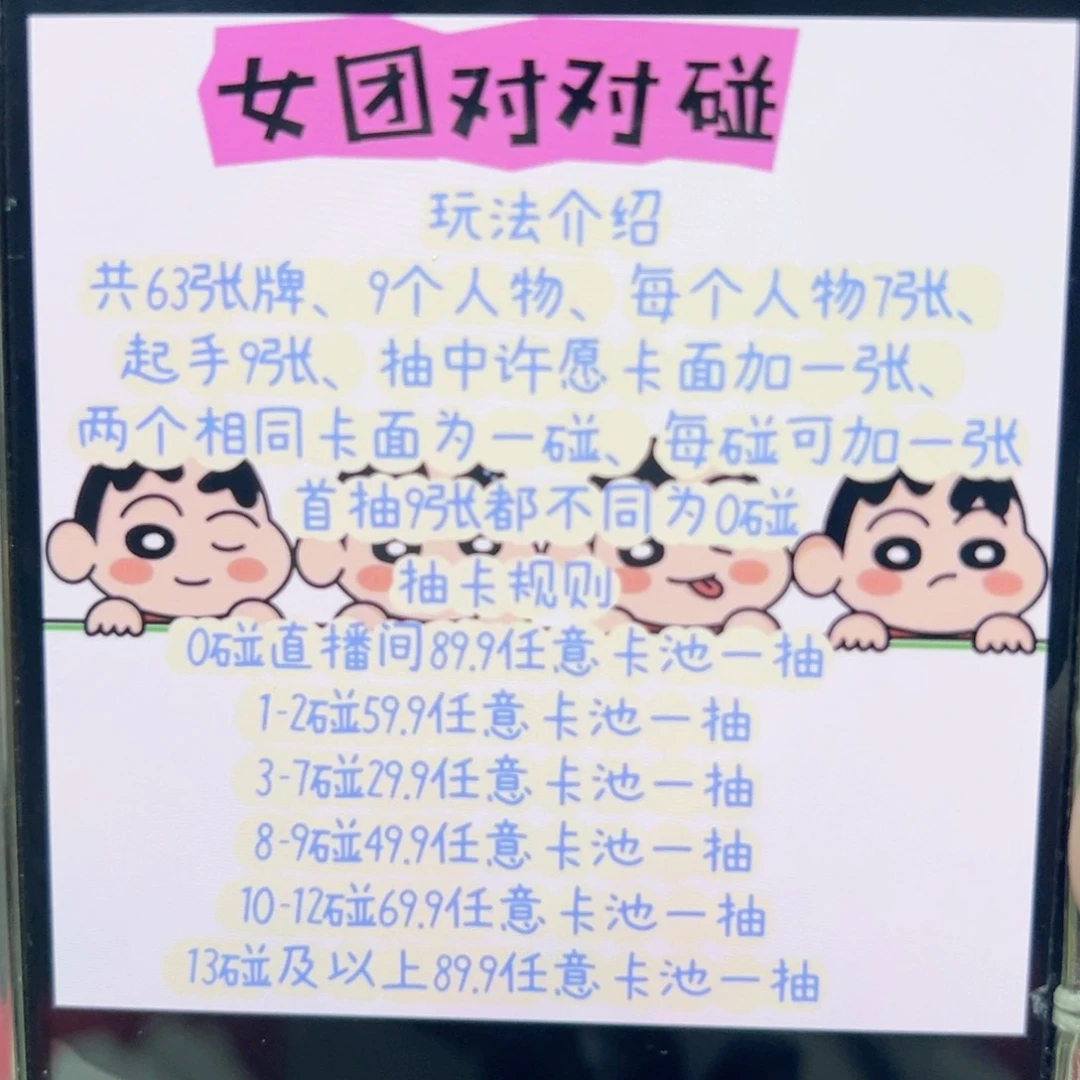 女团对对碰
玩法介绍
共63张牌、9个人物、每个人物7张、
起手9张、抽中许愿卡面加一张、
两个相同卡面为一碰、每碰可加一张
首抽9张都不同为0碰
抽卡规则
0碰直播间89.9任意卡池一抽
1-2碰59.9任意卡池一抽
3-7碰29.9任意卡池一抽
8-9碰49.9任意卡池一抽
10-12碰69.9任意卡池一抽
13碰及以上89.9任意卡池一抽